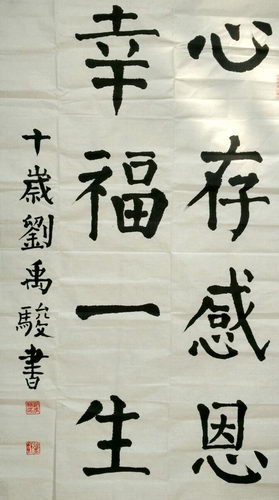 心存感恩
幸福一生
十歲劉禹駿書